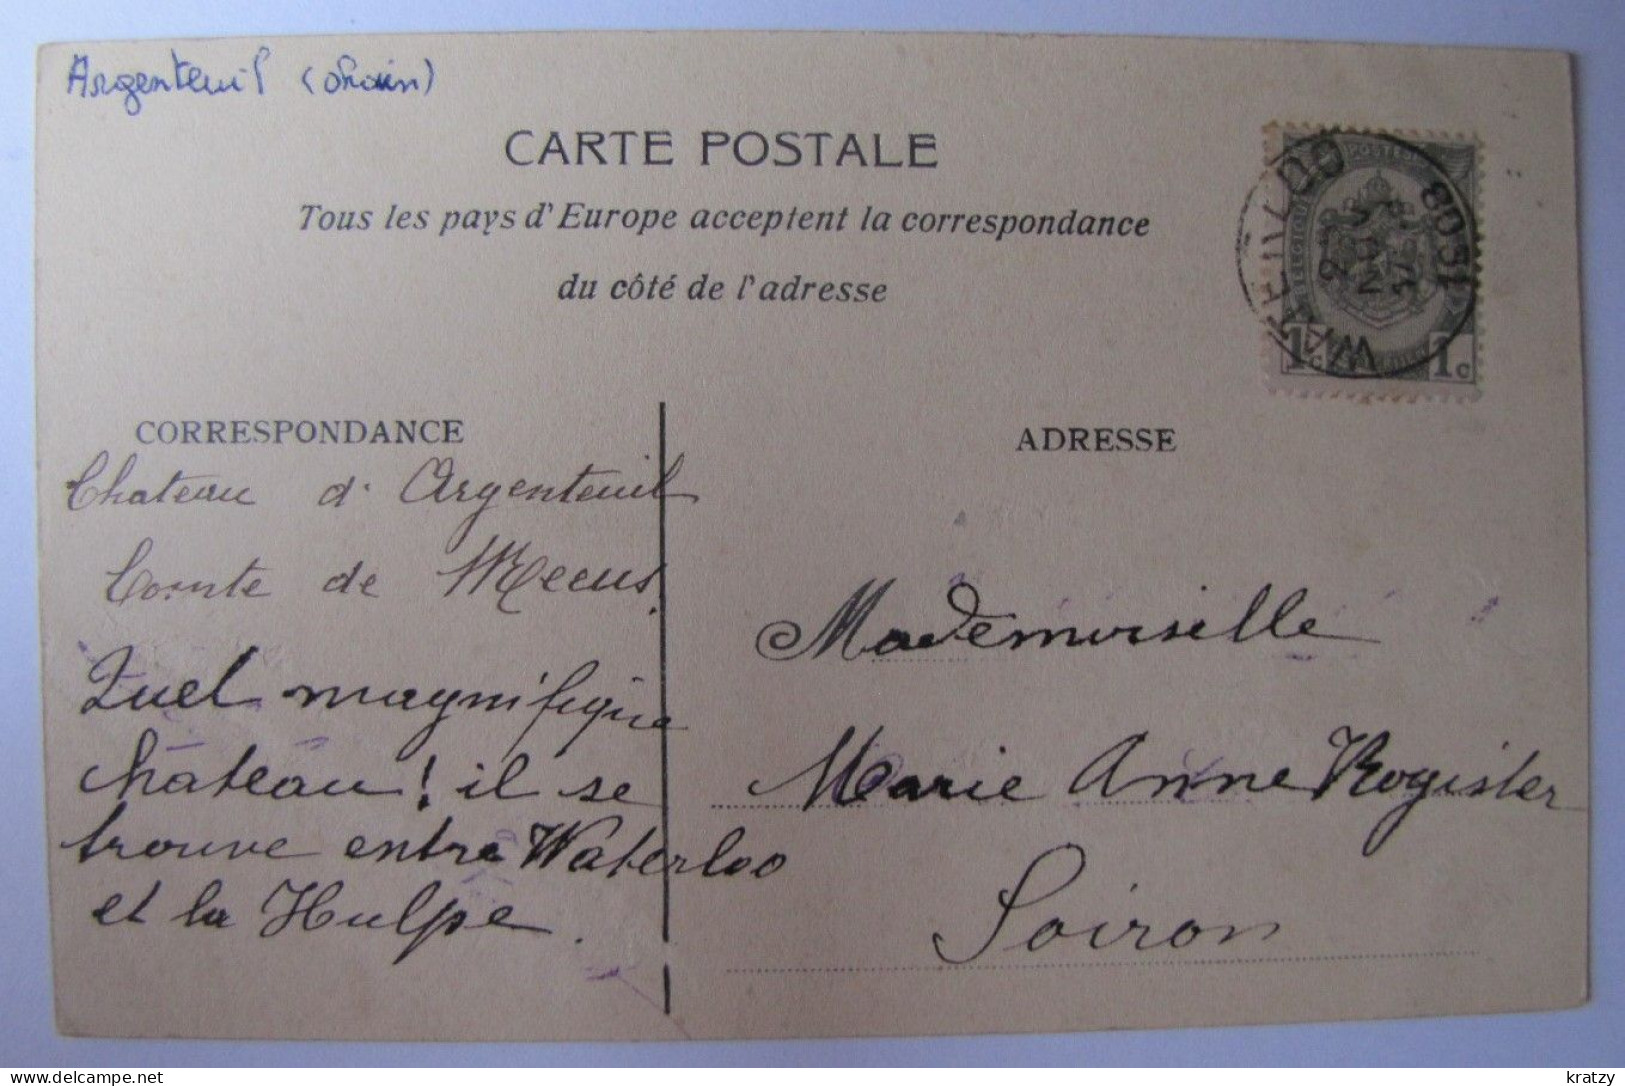 Argenteuil (Ohain)
CARTE POSTALE
Tous les pays d'Europe acceptent la correspondance
du côté de l'adresse
POSTE
BELGIQUE
1c 1c
1908
CORRESPONDANCE
Chateau d'Argenteuil
Comte de Meeus.
Quel magnifique
château! il se
trouve entre Waterloo
et la Hulpe.
ADRESSE
Mademoiselle
Marie Anne Rogister
Soiron
delcampe.net
kratzy